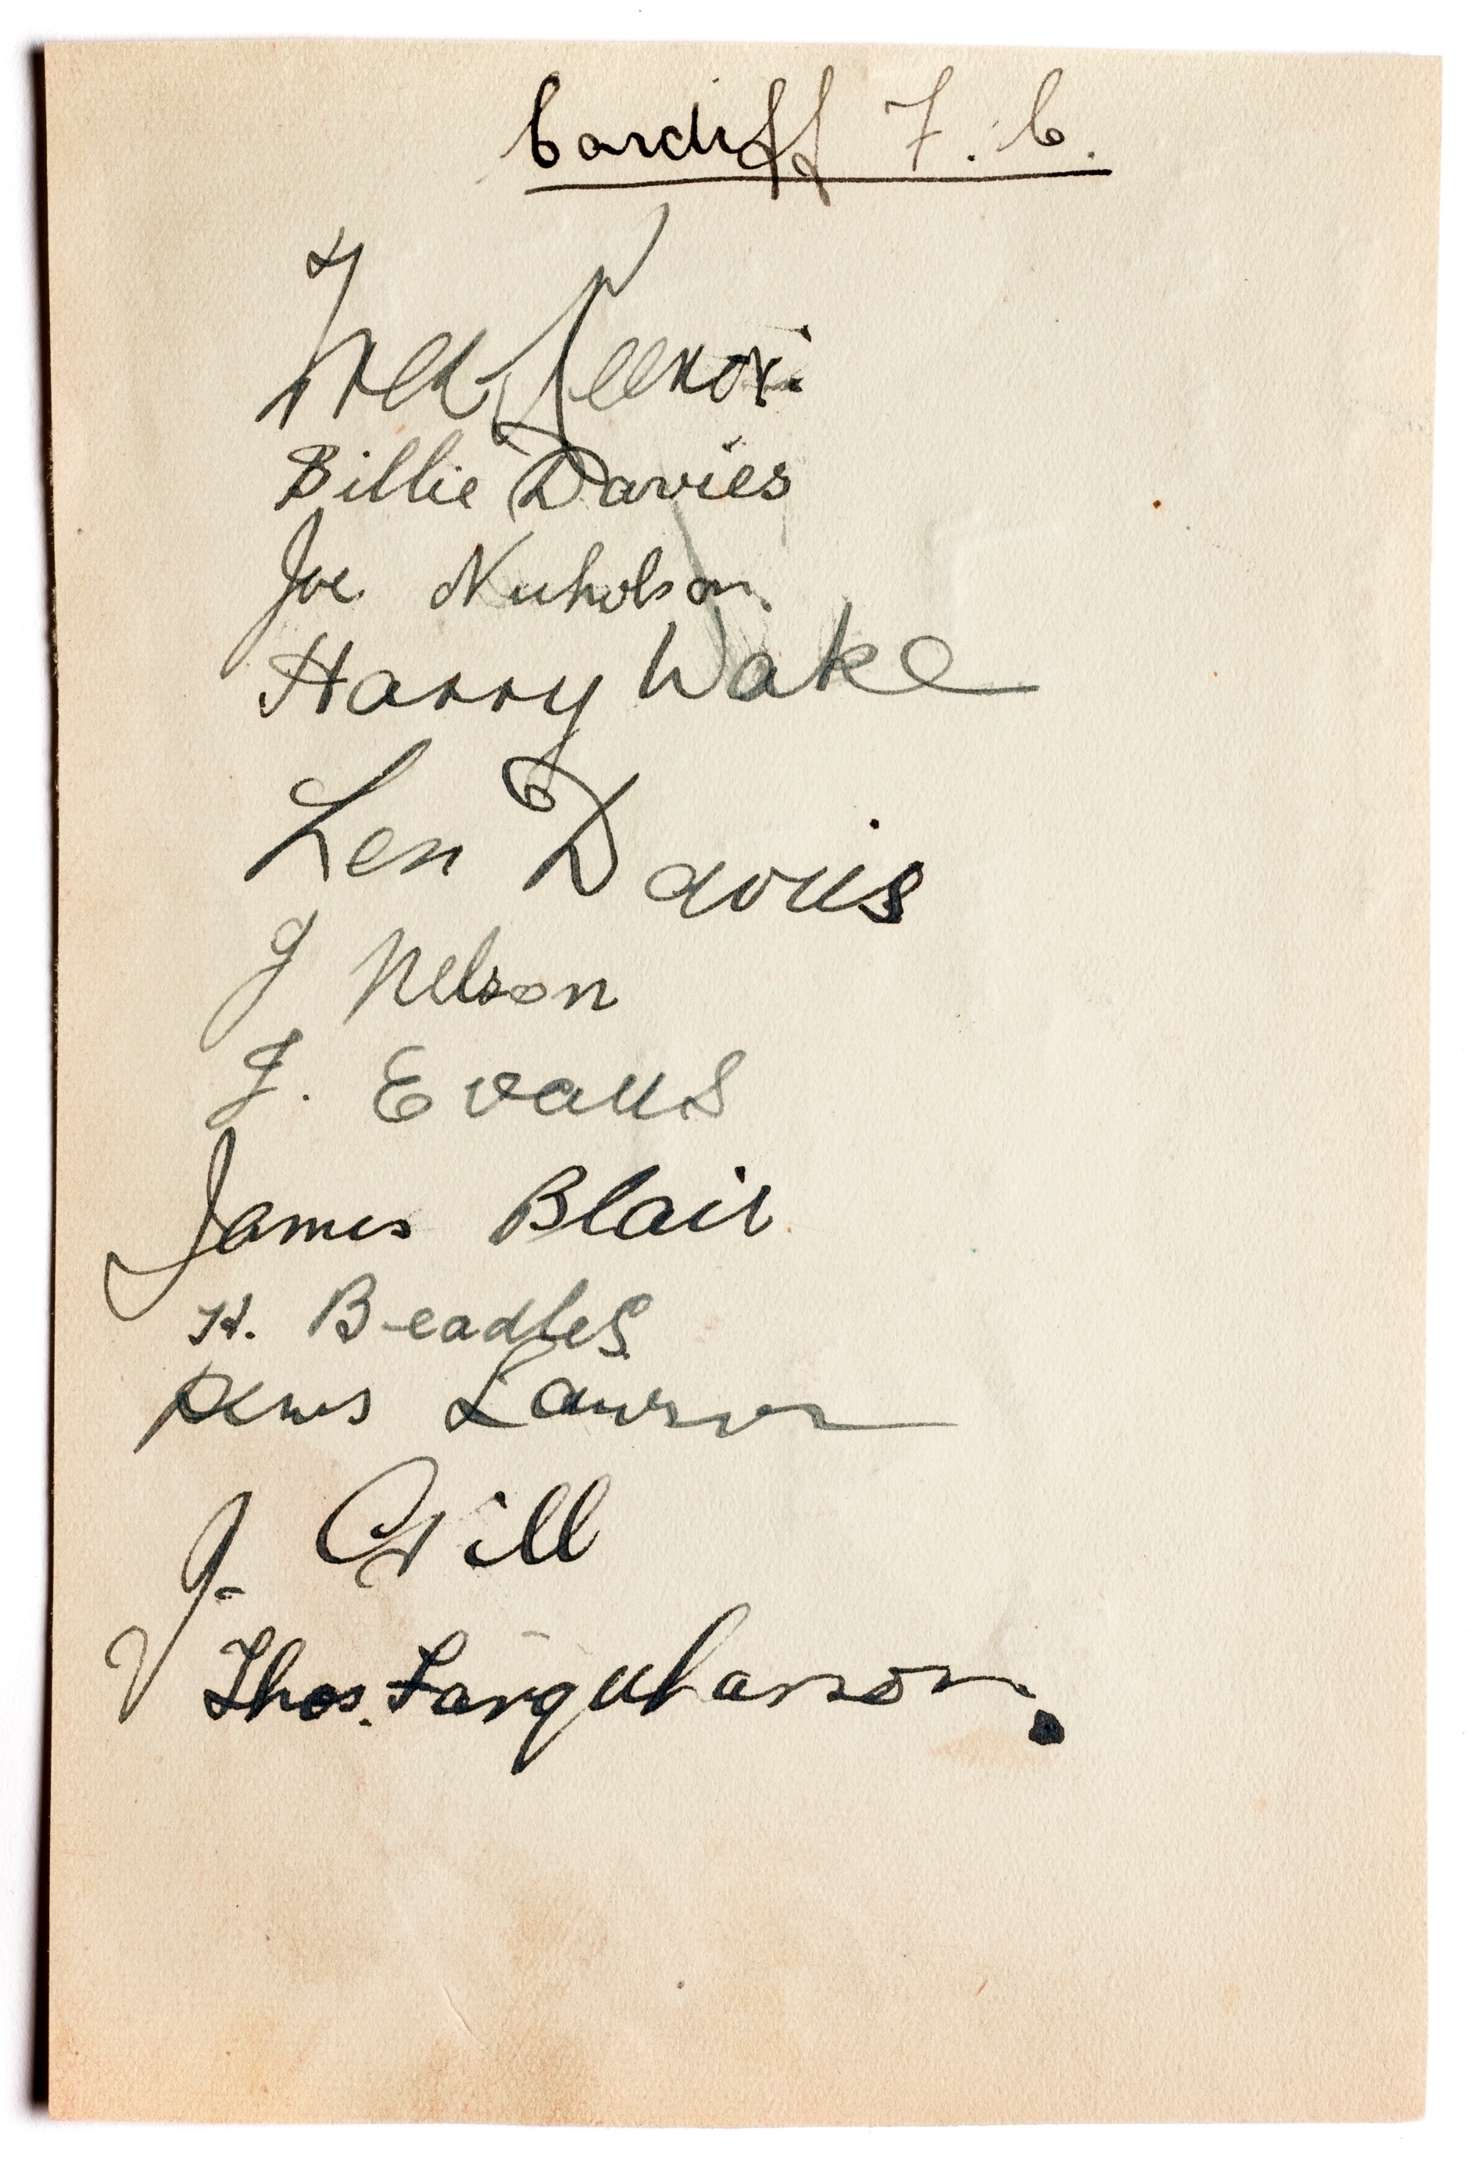 Cardiff F.C.
Fred Keenor.
Billie Davies
Joe Nicholson.
Harry Wake
Len Davies
J Nelson
J. Evans
James Blair
H. Beadles.
Denis Lawson
J. Gill
Thos. Farquharson.